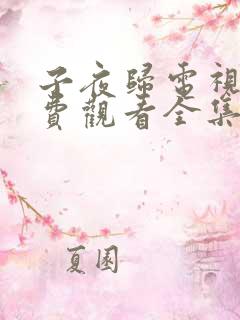 子夜歸電視
費觀看全集
夏園